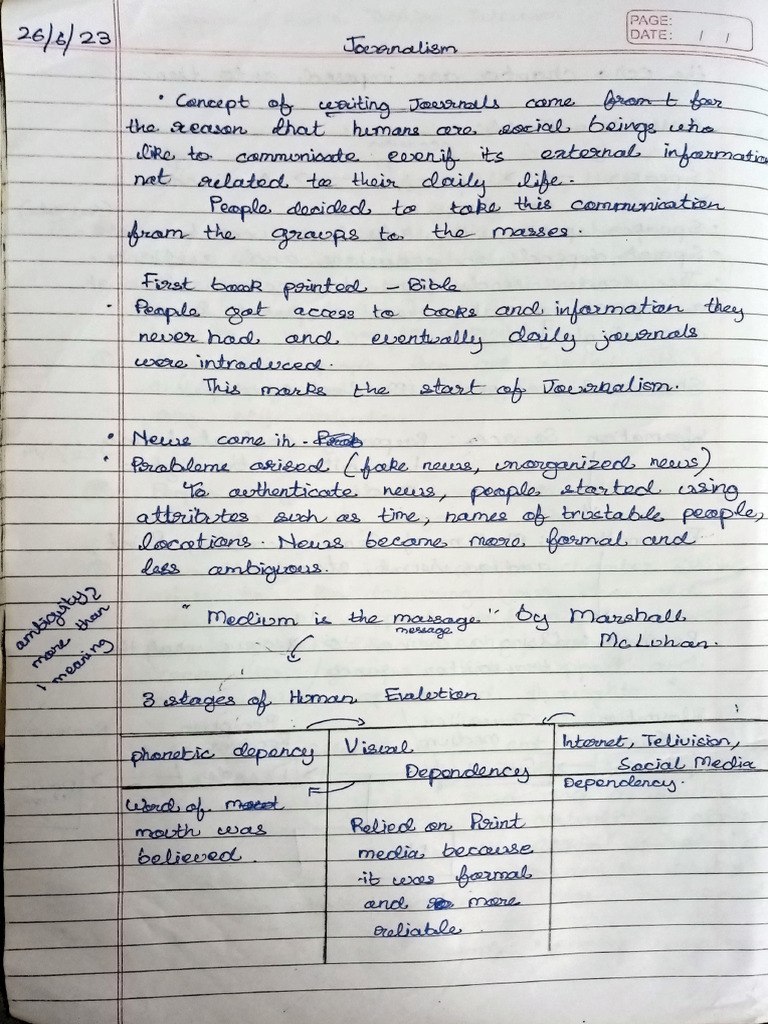 26/6/23
PAGE:
DATE: / /
Journalism
• Concept of writing Journals came from t for
the reason that humans are social beings who
like to communicate evenif its external informatio
not related to their daily life.
People decided to take this communication
from the groups to the masses.
First book printed - Bible
• People got access to books and information they
never had and eventually daily journals
were introduced.
This marks the start of Journalism.
• News came in -
• Problems arised (fake news, unorganized news)
To authenticate news, people started using
attributes such as time, names of trustable people,
locations. News became more formal and
less ambiguous.
ambiguity?
more than
1 meaning
"Medium is the massage" by Marshall
message
McLuhan.
3 stages of Human Evalution
phonetic depency
Visual
Dependency
Internet, Telivision,
Social Media
Dependency.
Word of
mouth was
believed.
Relied on Print
media because
it was formal
and more
reliable